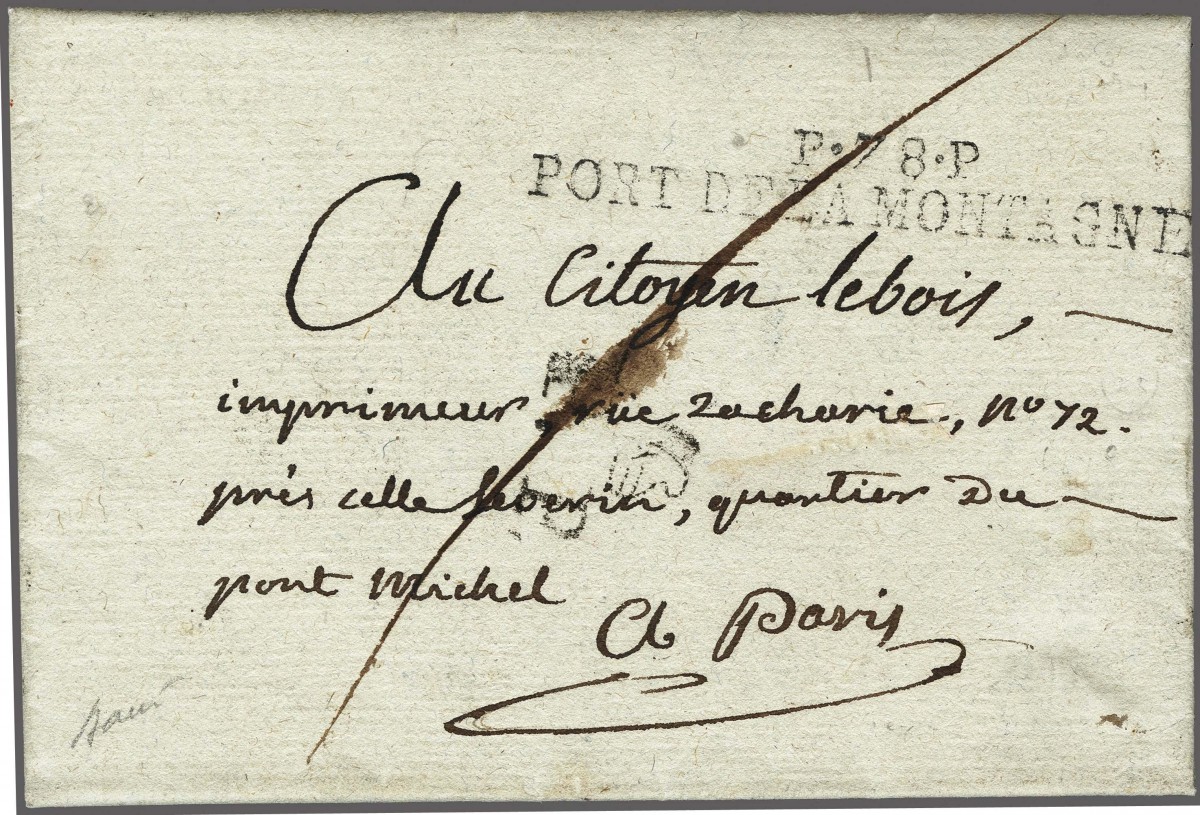 P•78•P
PORT DE LA MONTAGNE
Au Citoyen lebois,
imprimeur, rüe zacharie, no 72.
prés celle Severin, quartier Du
pont Michel
A Paris